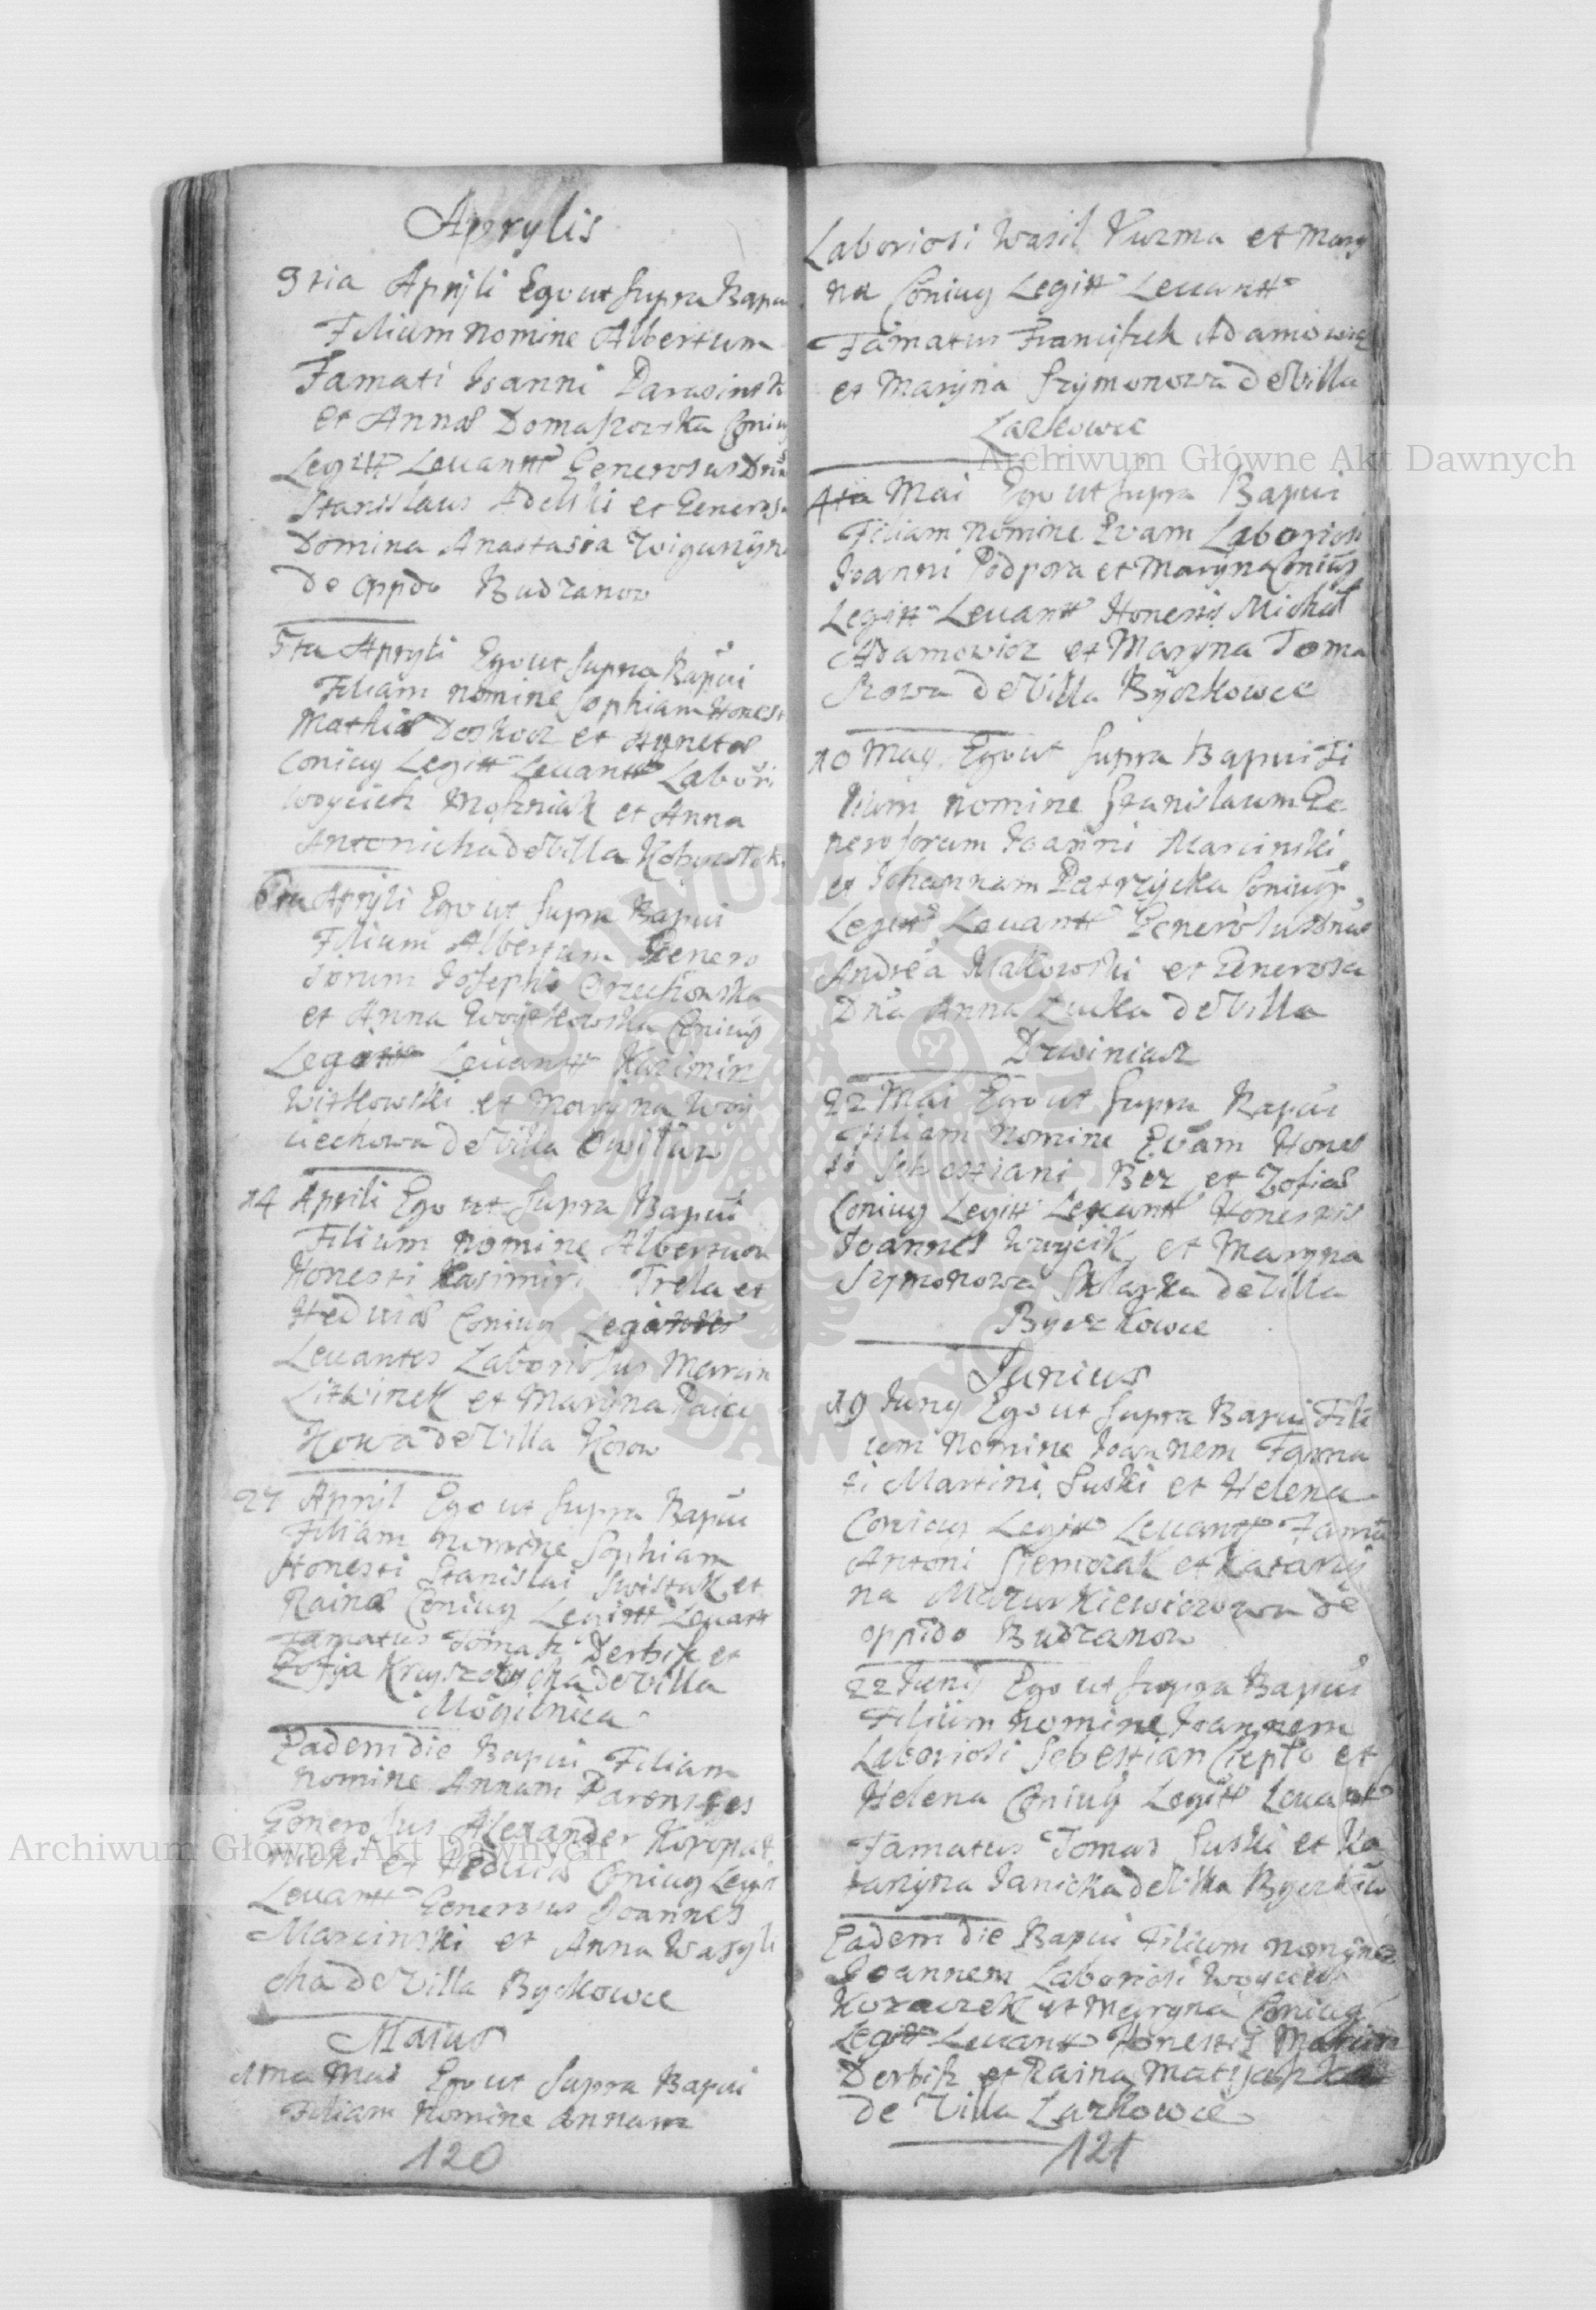 Aprylis
3tia Aprijli Ego ut supra Bapui
Filium nomine Albertum
Famati Joanni
et Annæ Domaszowska Coniug
Legitt Levantt Generosus Dnus
Stanislaus Adelski et Generosa
Domina Anastasia
de oppdo Budzanow
5ta Apryli Ego ut supra Bapui
Filiam nomine Sophiam Honesti
Mathiæ Doskocz et Agnetæ
Coniug Legitt Levantt Labori
Woyciech Moszniak et Anna
Antonicha de Villa
6ta Aprijli Ego ut supra Bapui
Filium Albertum Genero
sorum Josephi Orzechowska
et Anna Woytkowska Coniug
Legitt Levantt Kazimirz
Witkowski et Maryna Woy
ciechowa de Villa
14 Aprili Ego ut supra Bapui
Filium nomine Albertum
Honesti Kasimiri Trela et
Hedvigæ Coniug
Levantes Laboriosus Marcin
Litwinek et Maryna
kowa de Villa Kosow
27 Aprijl Ego ut supra Bapui
Filiam nomine Sophiam
Honesti Stanislai Swistak et
Rainæ Coniug Legitt Levantt
Famatus Tomasz Derbisz et
Zofija de Villa
Mogilnica
Eadem die Bapui Filiam
nomine Annam Parentes
Generosus Alexander Koropat
nicki et Hedvigæ Coniug Legitt
Levantt Generosus Joannes
Marcinski et Anna Wasyli
cha de Villa Byckowce
Maius
1ma Mai Ego ut supra Bapui
Filiam Nomine Annam
120
Laboriosi Wasil Kuzma et Mary
na Coniug Legitt Levantt
Famatus Franciszek Adamowicz
et Maryna Szymonowa de Villa
Laskowce
4ta Mai Ego ut supra Bapui
Filiam nomine Evam Laboriosi
Joanni Podpora et Maryna Coniug
Legitt Levantt Honestis Michał
Adamowicz et Maryna Toma
szowa de Villa Byczkowce
10 May Ego ut supra Bapui Fi
lium nomine Stanislaum Ge
nerosorum Joanni Marcinski
et Johannam Patrzycka Coniug
Legitt Levantt Generosus Dnus
Andrea Makowski et Generosa
Dna Anna Łucka de Villa
Dzwiniacz
22 Mai Ego ut supra Bapui
Filiam Nomine Evam Hones
ti Sebestiani Bez et Zofiæ
Coniug Legitt Levantt Honestis
Joannes Woycik et Maryna
Szymonowa Sklarka de Villa
Byczkowce
Junius
19 Juny Ego ut supra Bapui Fili
um Nomine Joannem Fama
ti Martini Suski et Helena
Coniug Legitt Levantt Famati
Antoni et Katarzy
na Mazurkiewiczowa de
oppido Budzanow
22 Junij Ego ut supra Bapui
Filium nomine Joannem
Laboriosi Sebestian Ciepło et
Helena Coniug Legitt Levantt
Famatus Tomas Suski et Ka
tarzyna Janicka de Villa
Eadem die Bapui Filium nomine
Joannem Laboriosi Woyciech
Kozaczek et Maryna Coniug
Legitt Levantt Honestis
Derbisz et Raina
de Villa Laskowce
121